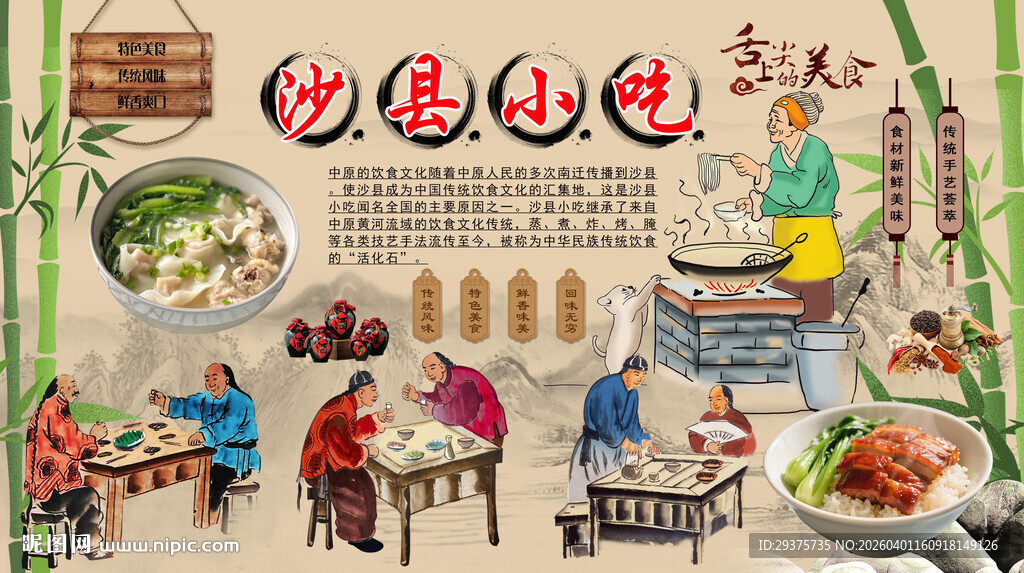 特色美食
传统风味
鲜香爽口
沙县小吃
舌尖上的美食
中原的饮食文化随着中原人民的多次南迁传播到沙县
。使沙县成为中国传统饮食文化的汇集地，这是沙县
小吃闻名全国的主要原因之一。沙县小吃继承了来自
中原黄河流域的饮食文化传统，蒸、煮、炸、烤、腌
等各类技艺手法流传至今，被称为中华民族传统饮食
的“活化石”。
食材新鲜美味
传统手艺荟萃
传统风味
特色美食
鲜香味美
回味无穷
昵图网 www.nipic.com
ID:29375735 NO:20260401160918149126